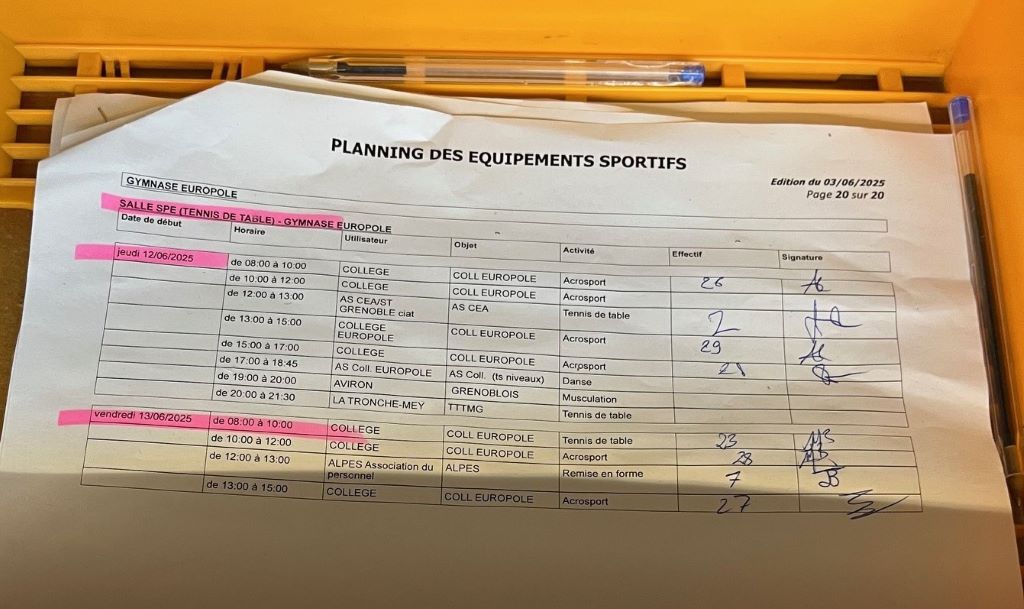 PLANNING DES EQUIPEMENTS SPORTIFS
Edition du 03/06/2025
Page 20 sur 20
GYMNASE EUROPOLE
SALLE SPE (TENNIS DE TABLE) - GYMNASE EUROPOLE
Date de début Horaire Utilisateur Objet Activité Effectif Signature
jeudi 12/06/2025 de 08:00 à 10:00 COLLEGE COLL EUROPOLE Acrosport 26
de 10:00 à 12:00 COLLEGE COLL EUROPOLE Acrosport
de 12:00 à 13:00 AS CEA/ST AS CEA Tennis de table 2
GRENOBLE ciat
de 13:00 à 15:00 COLLEGE COLL EUROPOLE Acrosport 29
EUROPOLE
de 15:00 à 17:00 COLLEGE COLL EUROPOLE Acrosport
de 17:00 à 18:45 AS Coll. EUROPOLE AS Coll. (ts niveaux) Danse
de 19:00 à 20:00 AVIRON GRENOBLOIS Musculation
de 20:00 à 21:30 LA TRONCHE-MEY TTTMG Tennis de table
vendredi 13/06/2025 de 08:00 à 10:00 COLLEGE COLL EUROPOLE Tennis de table 23
de 10:00 à 12:00 COLLEGE COLL EUROPOLE Acrosport 28
de 12:00 à 13:00 ALPES Association du ALPES Remise en forme 7
personnel
de 13:00 à 15:00 COLLEGE COLL EUROPOLE Acrosport 27